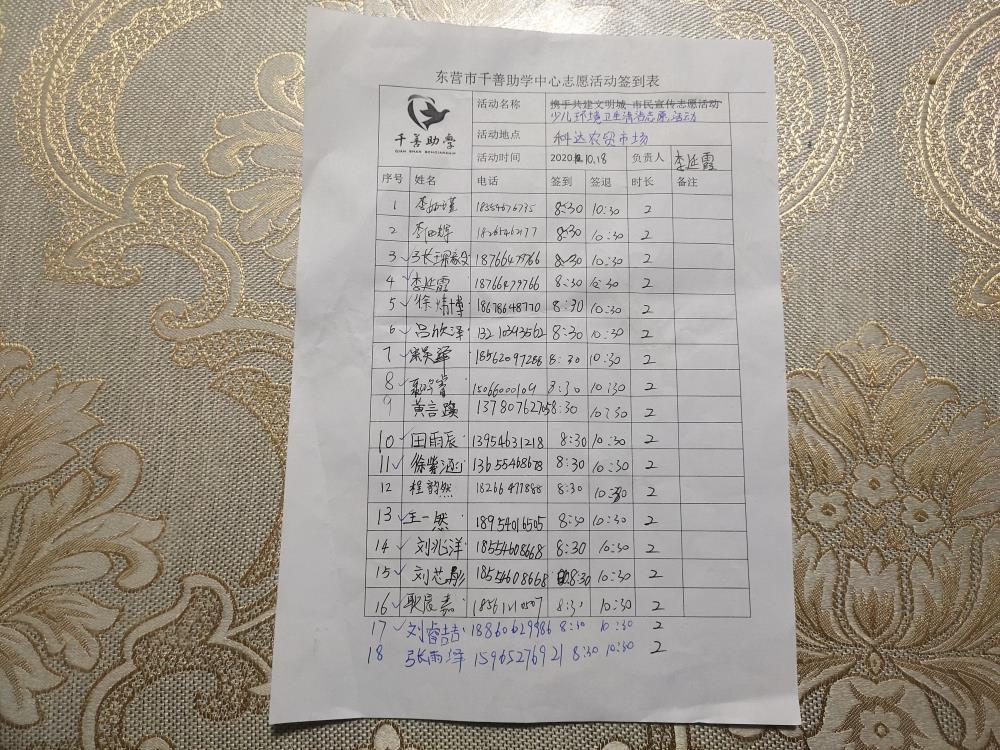 东营市千善助学中心志愿活动签到表
千善助学
QIAN SHAN SCHOLARSHIP
活动名称 携手共建文明城 市民宣传志愿活动
少儿环境卫生清洁志愿活动
活动地点 科达农贸市场
活动时间 2020. 10.18 负责人 李延霞
序号 姓名 电话 签到 签退 时长 备注
1 8:30 10:30 2
2 8:30 10:30 2
3 18766479766 8:30 10:30 2
4 李延霞 18766479766 8:30 10:30 2
5 徐炜博 18678648770 8:30 10:30 2
6 吕欣泽 13210343562 8:30 10:30 2
7 18562097288 8:30 10:30 2
8 15066000109 8:30 10:30 2
9 黄言蹊 13780762705 8:30 10:30 2
10 田雨辰 13954631218 8:30 10:30 2
11 徐紫涵 13655468678 8:30 10:30 2
12 程韵然 18266477888 8:30 10:30 2
13 王一然 18954016505 8:30 10:30 2
14 刘兆洋 18554608668 8:30 10:30 2
15 刘芯彤 18554608668 8:30 10:30 2
16 耿宸嘉 8:30 10:30 2
17 刘睿喆 18860629986 8:30 10:30 2
18 张雨泽 15965276921 8:30 10:30 2